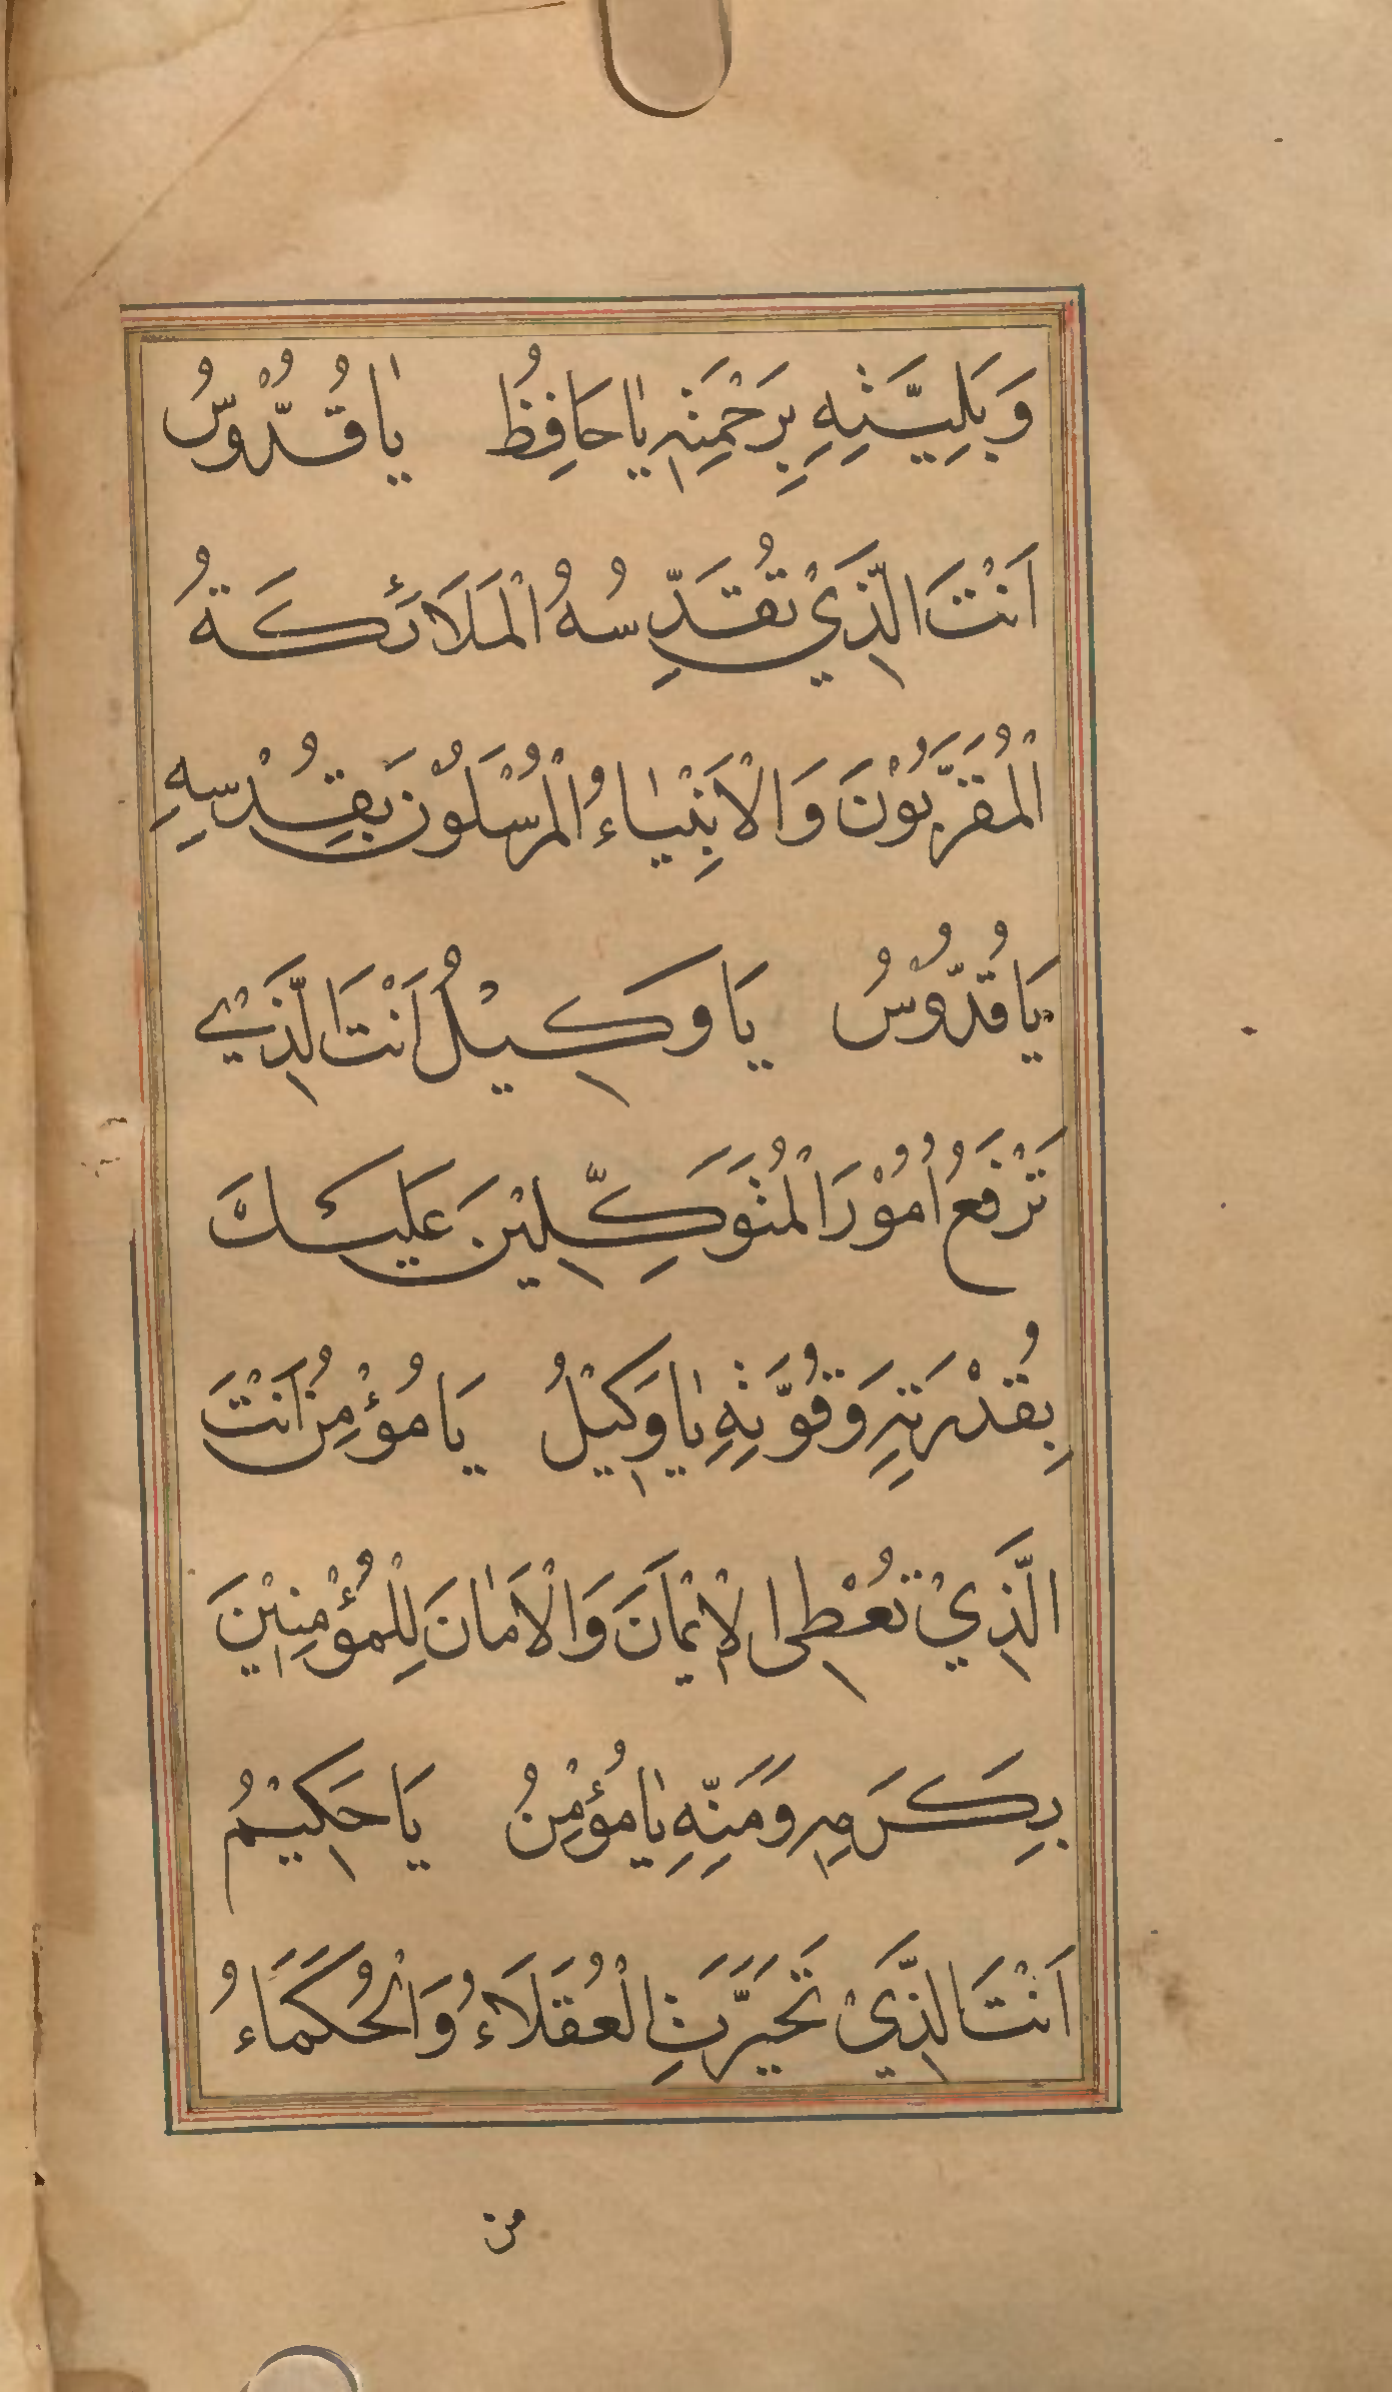 وَبَلِيَّتِهِ بِرَحْمَتِهِ يَا حَافِظُ يَا قُدُّوْسُ
اَنْتَ الَّذِيْ تُقَدِّسُهُ الْمَلَائِكَةُ
الْمُقَرَّبُوْنَ وَالْاَنْبِيَاءُ الْمُرْسَلُوْنَ بِقُدْسِهِ
يَا قُدُّوْسُ يَا وَكِيْلُ اَنْتَ الَّذِيْ
تَرْفَعُ اُمُوْرَ الْمُتَوَكِّلِيْنَ عَلَيْكَ
بِقُدْرَتِهِ وَقُوَّتِهِ يَا وَكِيْلُ يَا مُؤْمِنُ اَنْتَ
الَّذِيْ تُعْطِى الْاِيْمَانَ وَالْاَمَانَ لِلْمُؤْمِنِيْنَ
بِكَرَمِهِ وَمَنِّهِ يَا مُؤْمِنُ يَا حَكِيْمُ
اَنْتَ الَّذِيْ تَحَيَّرَتِ الْعُقَلَاءُ وَالْحُكَمَاءُ
من